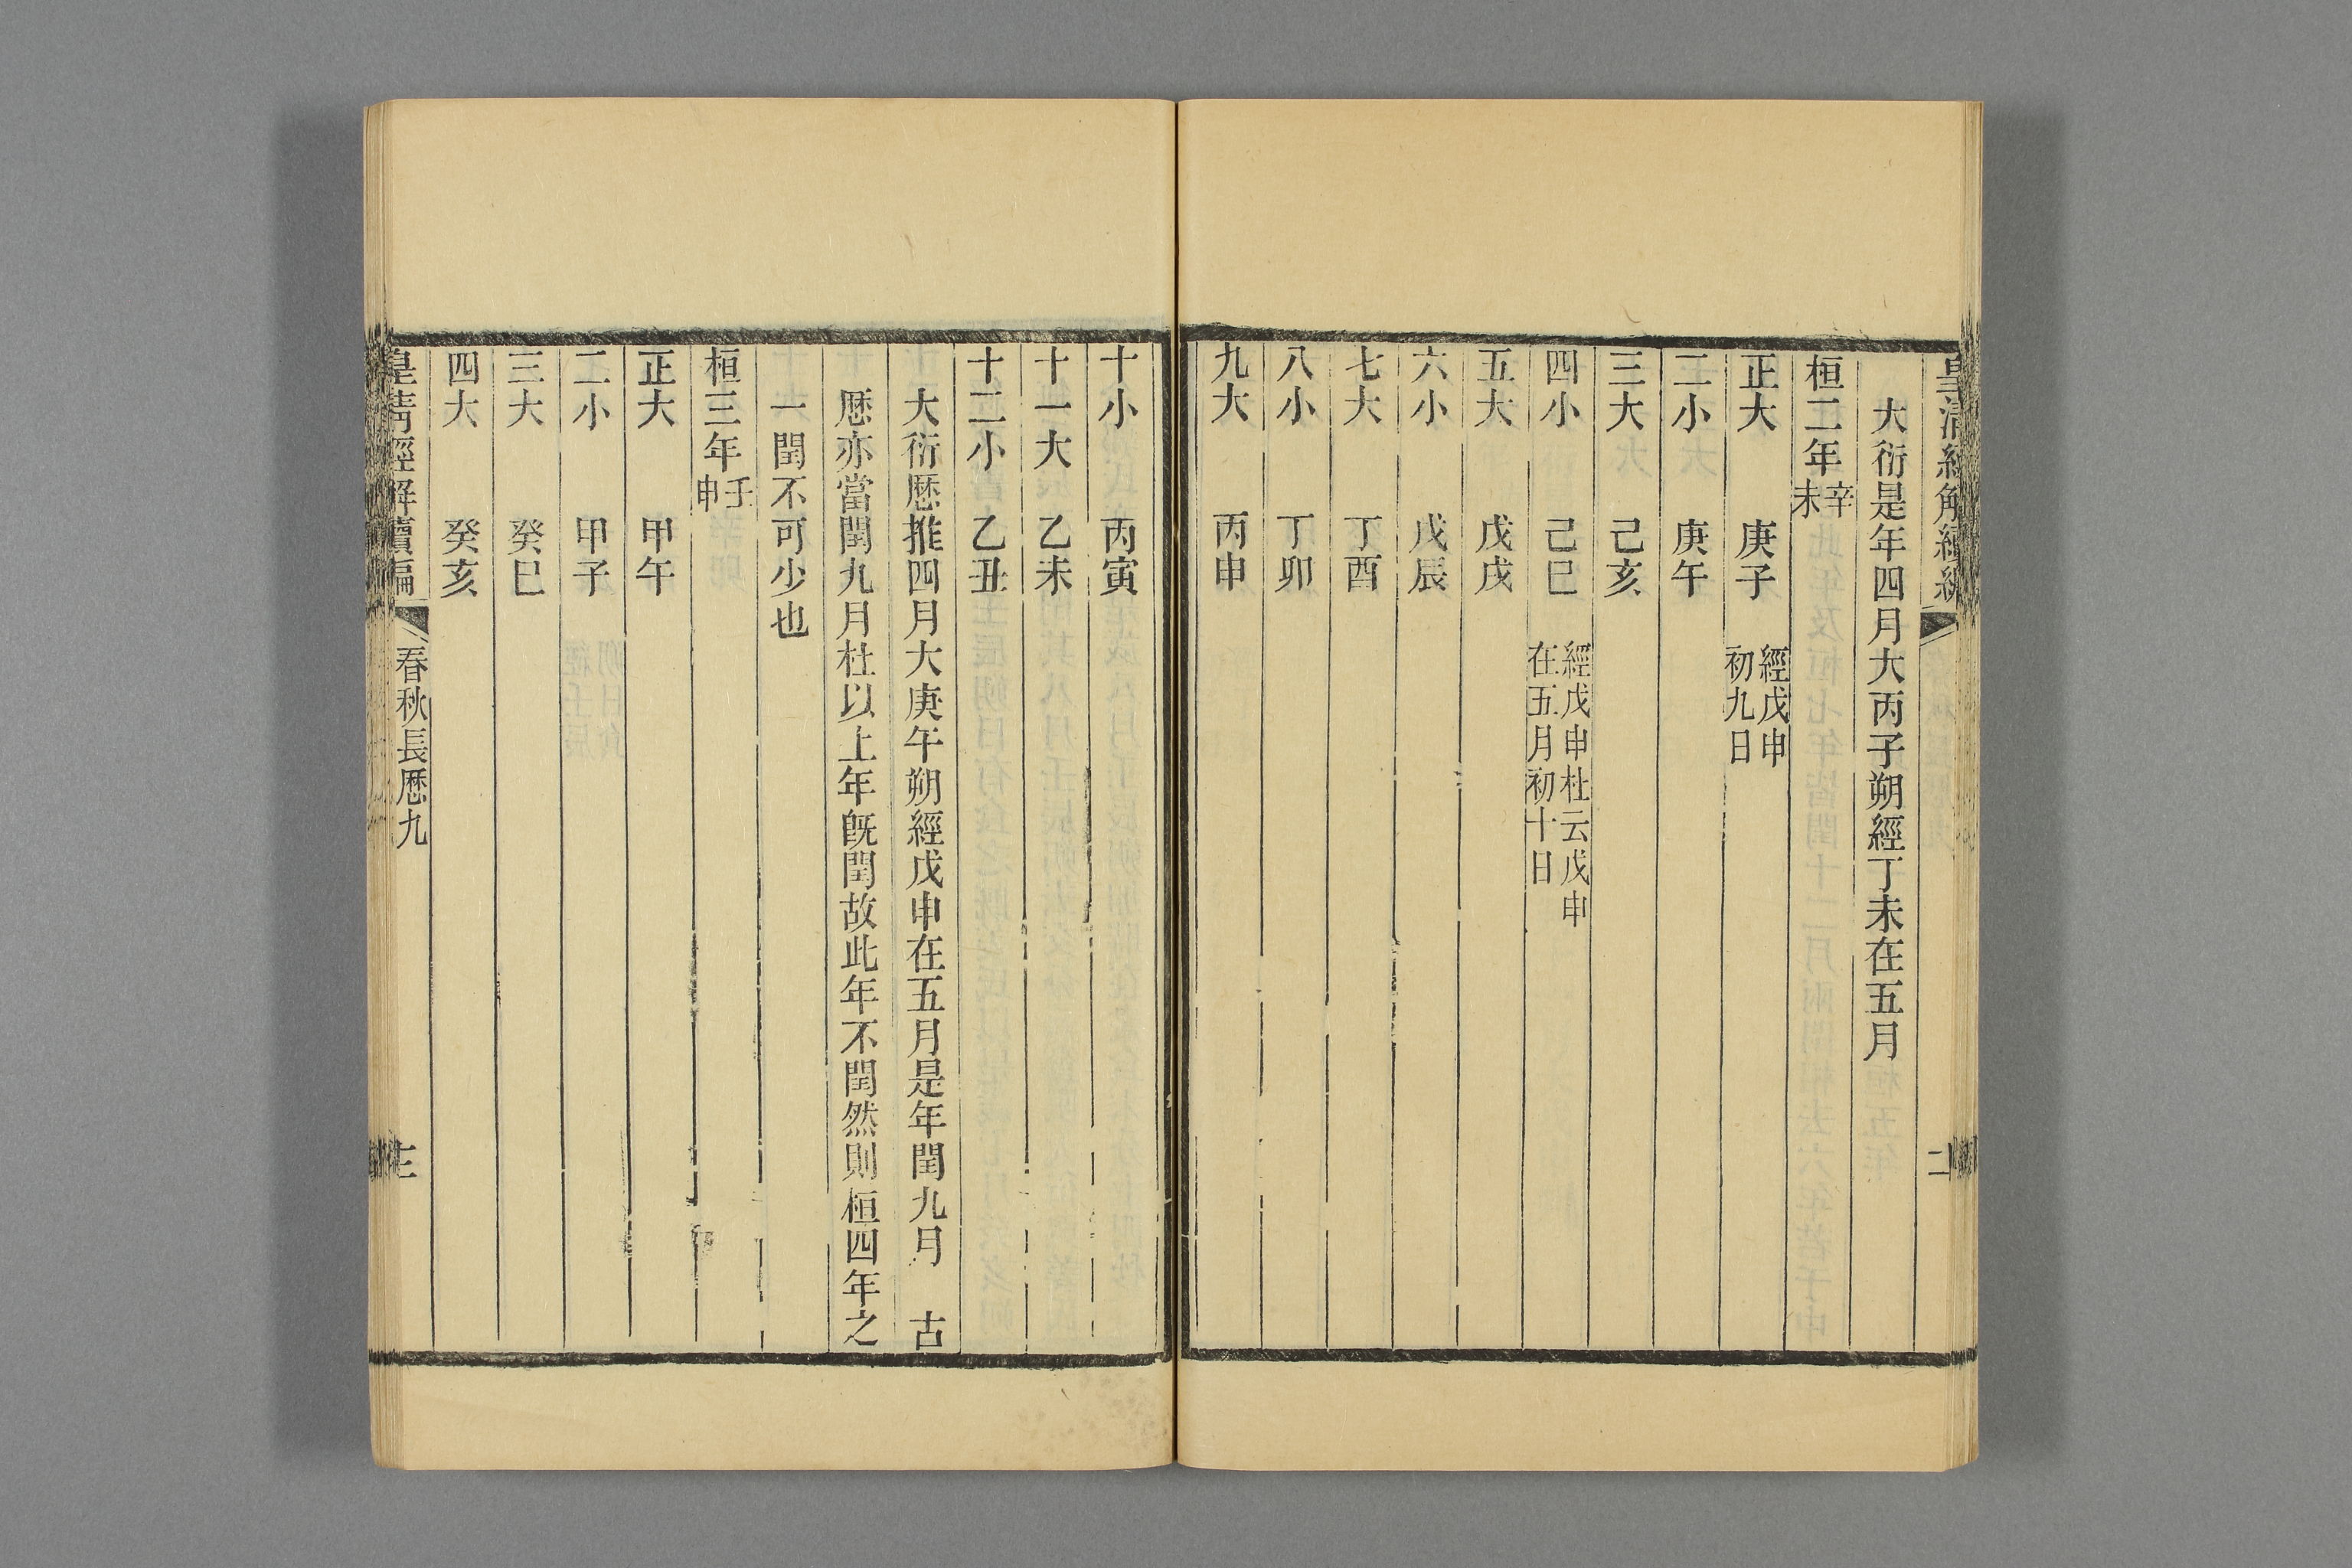 皇清經解續編
二
大衍是年四月大丙子朔經丁未在五月
桓二年辛未
正大 庚子 經戊申初九日
二小 庚午
三大 己亥
四小 己巳 經戊申杜云戊申在五月初十日
五大 戊戌
六小 戊辰
七大 丁酉
八小 丁卯
九大 丙申
十小 丙寅
十一大 乙未
十二小 乙丑
大衍厯推四月大庚午朔經戊申在五月是年閏九月 古
厯亦當閏九月杜以上年旣閏故此年不閏然則桓四年之
一閏不可少也
桓三年壬申
正大 甲午
二小 甲子
三大 癸巳
四大 癸亥
皇清經解續編 春秋長厯九